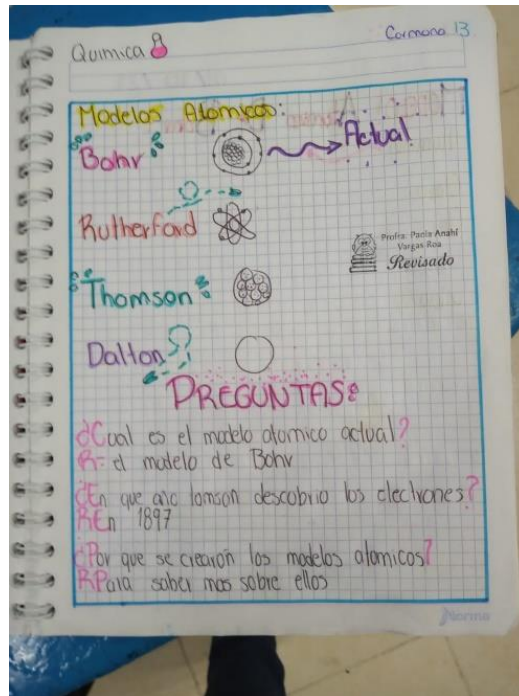 Quimica
Carmona 13
Modelos Atomicos:
Bohr:
Actual
Rutherford
Profra. Paola Anahí
Vargas Roa
Revisado
Thomson:
Dalton
PREGUNTAS:
¿Cual es el modelo atomico actual?
R= el modelo de Bohr
¿En que año tomson descobrio los electrones?
R En 1897
¿Por que se crearón los modelos atomicos?
R Para saber mas sobre ellos
Norma